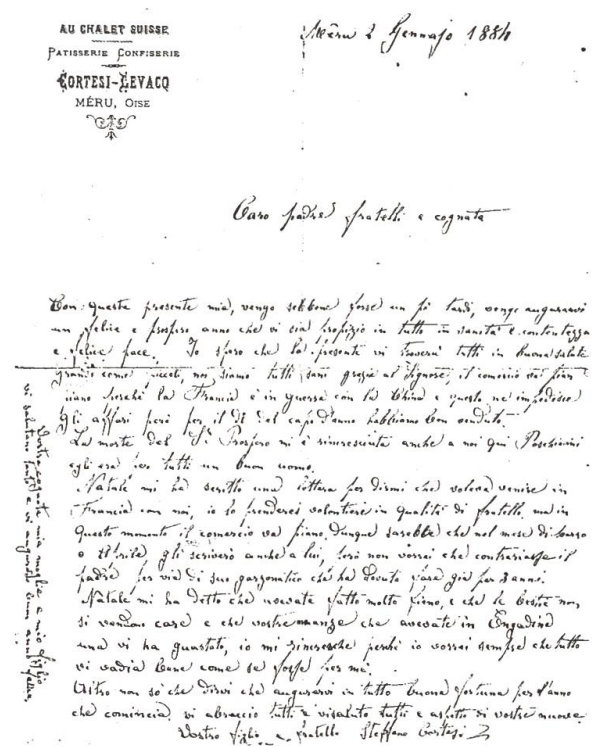 AU CHALET SUISSE
PATISSERIE CONFISERIE
CORTESI-LEVACQ
MÉRU, OISE
Méru 2 Gennajo 1884
Caro padre fratelli e cognata
Con questa presente mia, vengo sebbene forse un pò tardi, vengo augurarvi
un felice e prospero anno che vi sia propizio in tutto in sanità e contentezza
e felice pace. Io spero che la presente vi troverà tutti in buona salute
grandi come piccoli, noi siamo tutti sani grazie al Signore, il comercio va pian
piano perchè la Francia è in guerra con la China e questo ne impedisce
gli affari però per il dì del capo d'anno habbiamo ben venduto.
La morte del Sr Prospero mi è rincresciuta anche a noi qui Poschiavini
egli era per tutti un buon uomo.
Natale mi ha scritto una lettera per dirmi che voleva venire in
Francia con noi, io lo prenderei volontieri in qualità di fratello ma in
questo momento il comercio va piano, dunque sarebbe che nel mese di Marzo
o Aprile gli scriverò anche a lui, però non vorrai che contrariasse il
padre per via di suo garzonatico ch'ha dovuto fare già per 3 anni.
Natale mi ha detto che avevate fatto molto fieno, e che le bestie non
si vendono care e che vostre manze che avevate in Engadina
una vi ha guastato, io mi rincresche perchè io vorrai sempre che tutto
vi vadia bene come se fosse per me.
Altro non sò che dirvi che augurarvi in tutto buona fortuna per l'anno
che comincia vi abraccio tutti e vi saluto tutti e aspetto di vostre nuove
Vostro figlio e fratello Steffano Cortesi
Vostra cognata mia moglie e mio figlio
vi salutano tanto e vi augurano buon anno